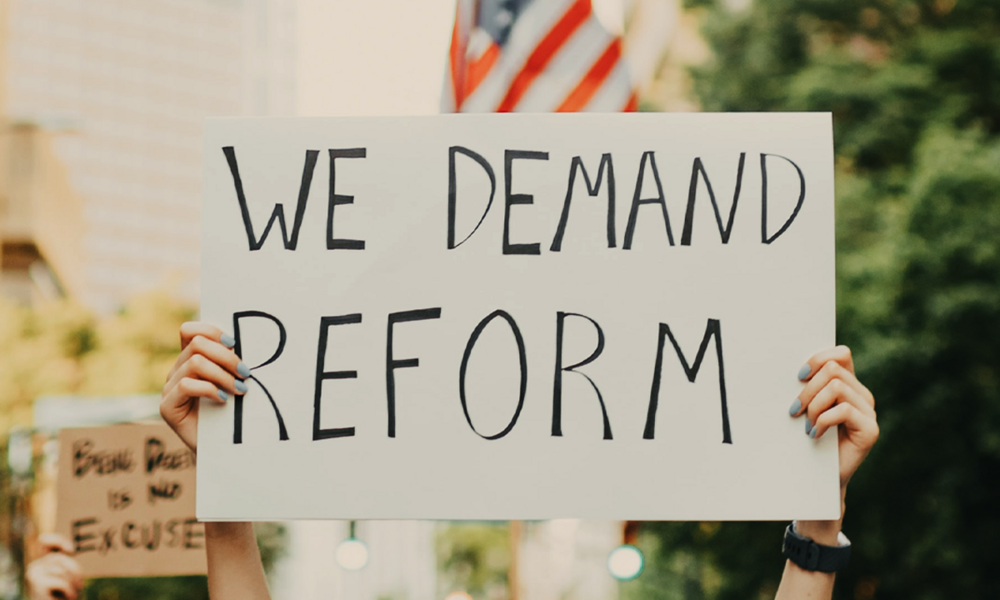 WE DEMAND
REFORM
BEING
IS NO
EXCUSE